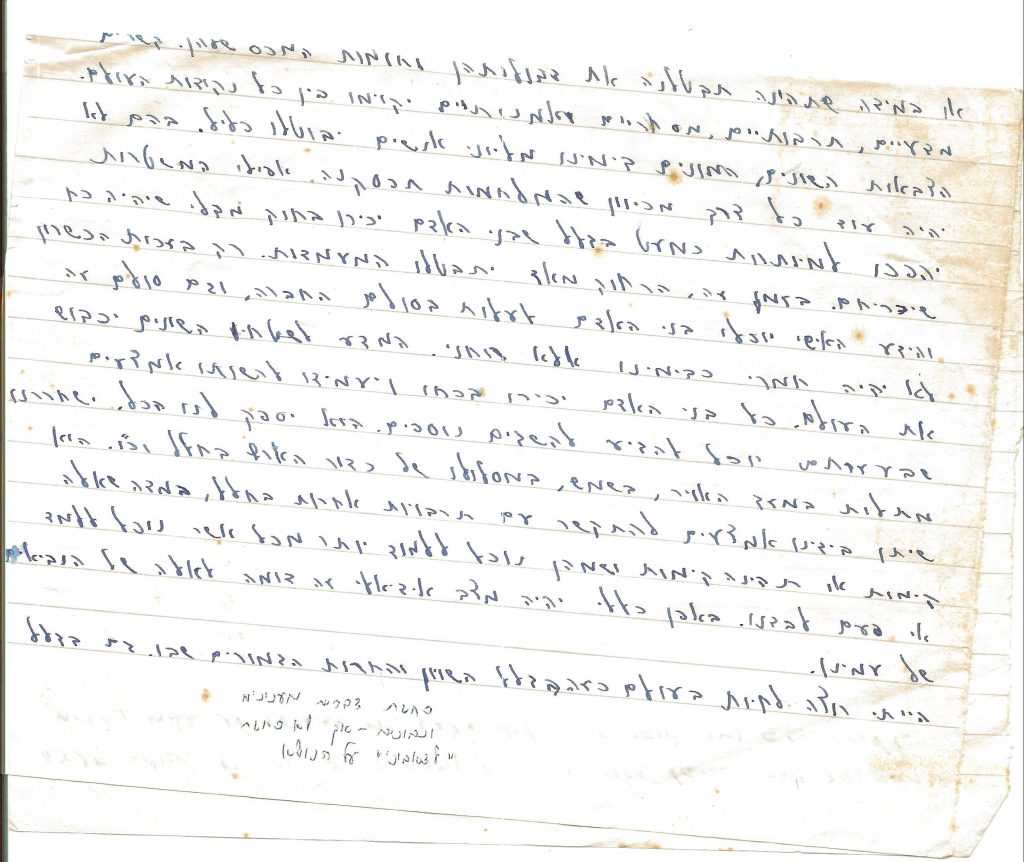 או במידה שתהינה תבטלנה את גבולותיהן וחומות המכס שעהן. קשרים
מדעיים, תרבותיים, מסחריים ואמנותיים יקוימו בין כל נקודות העולם.
הצבאות השונים, המונים בימינו מליוני אנשים יבוטלו כליל. בהם לא
יהיה עוד כל צרך מכיוון שהמלחמות תפסקנה. אפילו המשטרות
יהפכו למיותרות כמעט בגלל שבני האדם יכירו בחוק מבלי שיהיה כח
שיכריחם. בזמן זה, הרחוק מאד יתבטלו המעמדות. רק בזכות הכשרון
והידע האישי יוכלו בני האדם לעלות בסולם החברה, וגם סולם זה
לא יהיה חמרי כבימינו אלא רוחני. המדע לשטחיו השונים יכבוש
את העולם. כל בני האדם יכירו בכחו ויעמידו לרשותו אמצעים
שבעזרתם יוכל להגיע להשגים נוספים. הוא יספק לנו הכל. ישחררנו
מתלות במזג האויר, בשמש, במסלולו של כדור הארץ בחלל וכו'. הוא
שיתן בידינו אמצעים להתקשר עם תרבויות אחרות בחלל, במדה שאלה
קימות או תהינה קימות ושמהן נוכל ללמוד יותר מכל אשר נוכל ללמד
אי פעם לבדנו. באפן כללי יהיה מצב אידאלי זה דומה לאלה של הנביאים
של עמינו.
הייתי רוצה לחיות בעולם כזה בגלל השויון והחרות הגמורים שבו. גם בגלל
כתבת דברים מעניינים
ונבונים – אך לא כתבת
"לצאבוני" על הנושא